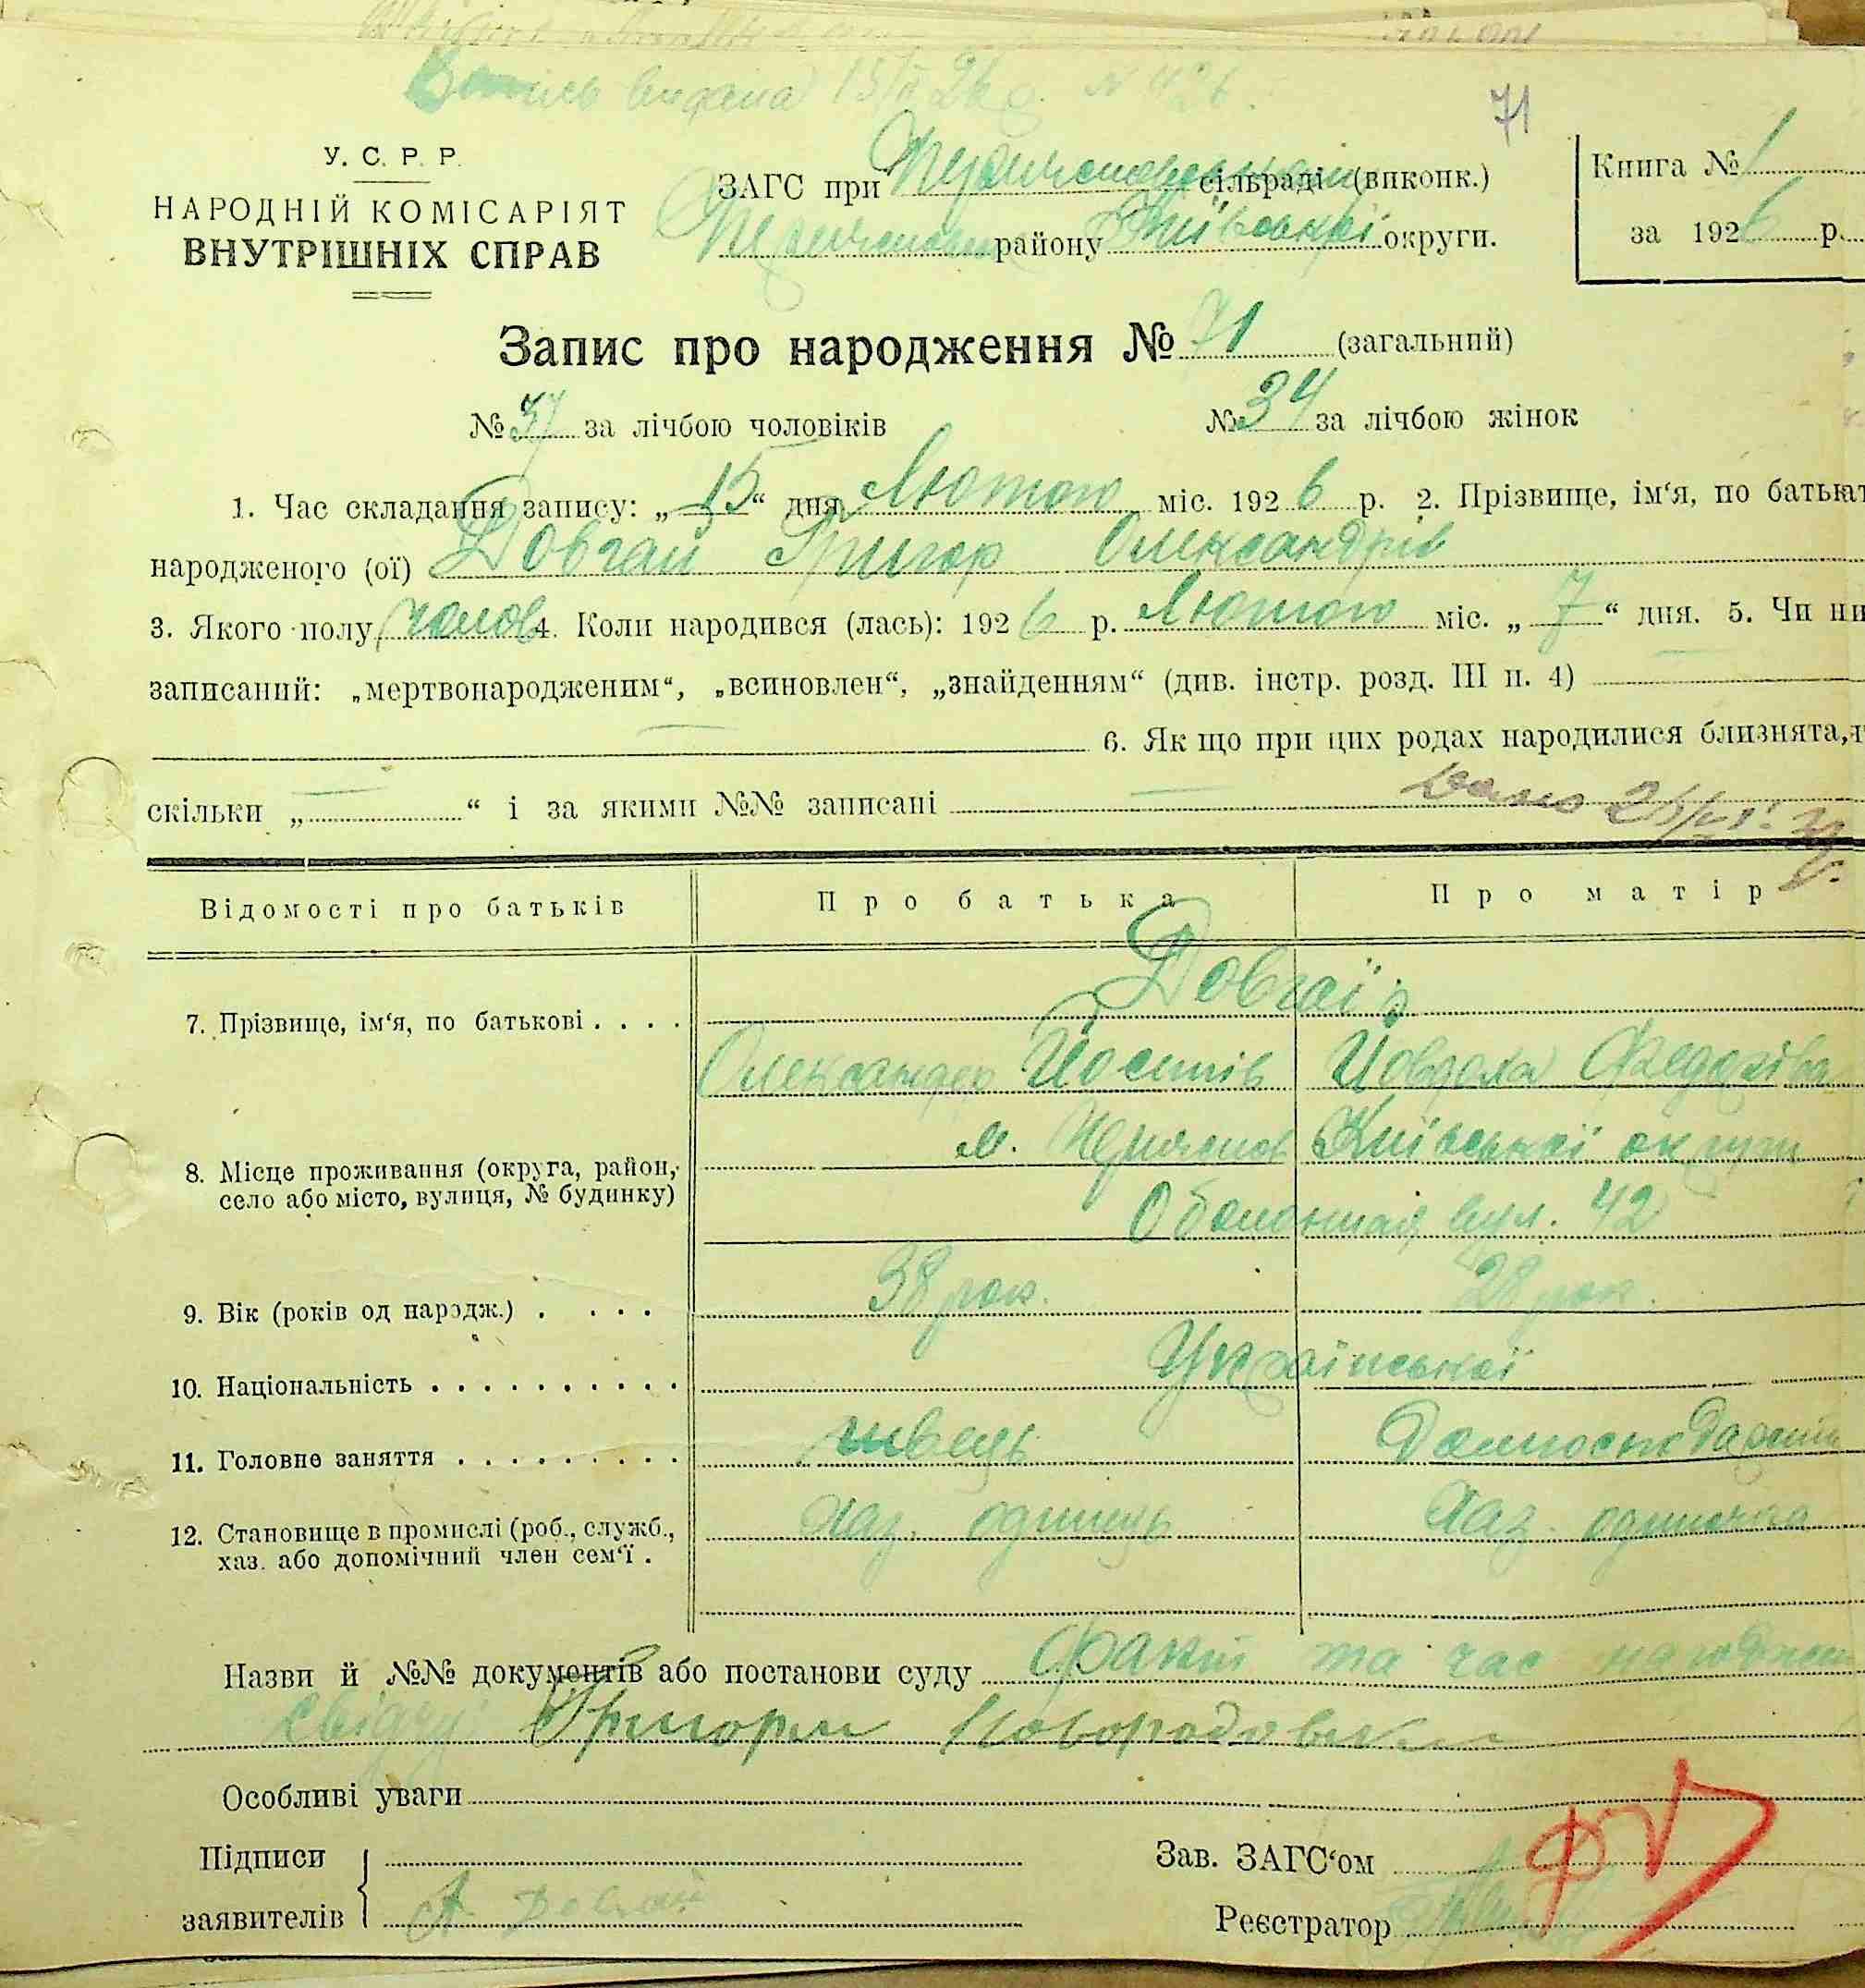 видана 15/II 26 р. № 426.
71
У. С. Р. Р.
НАРОДНІЙ КОМІСАРІЯТ
ВНУТРІШНІХ СПРАВ
ЗАГС при сільраді (виконк.)
району Київської округи.
Книга № 1
за 1926 р.
Запис про народження № 71 (загальний)
№ 37 за лічбою чоловіків № 34 за лічбою жінок
1. Час складання запису: „ 15 “ дня Лютого міс. 1926 р. 2. Прізвище, ім‘я, по батькові
народженого (ої) Довгай Григор Олександрів
3. Якого полу чолов 4. Коли народився (лась): 1926 р. Лютого міс. „ 7 “ дня. 5. Чи ни
записаний: „мертвонародженим“, „всиновлен“, „знайденням“ (див. інстр. розд. III п. 4)
6. Як що при цих родах народилися близнята,
скільки „ “ і за якими №№ записані
Відомості про батьків Про батька Про матір
7. Прізвище, ім‘я, по батькові . . . . Довгаї:
Олександер Йосипів Явдоха Федорівна
8. Місце проживання (округа, район, село або місто, вулиця, № будинку)
м. Київської округи
вул. 42
9. Вік (років од народж.) . . . . 38 рок. 28 рок.
10. Національність . . . . . . . . . . Української
11. Головне заняття . . . . . . . . . швець
12. Становище в промислі (роб., служб., хаз. або допомічний член сем‘ї . хаз. одинець хаз. одиначка
Назви й №№ документів або постанови суду Факт та час народжен
свідчу Григорій
Особливі уваги
Підписи
заявителів А Довгай
Зав. ЗАГС‘ом
Реєстратор